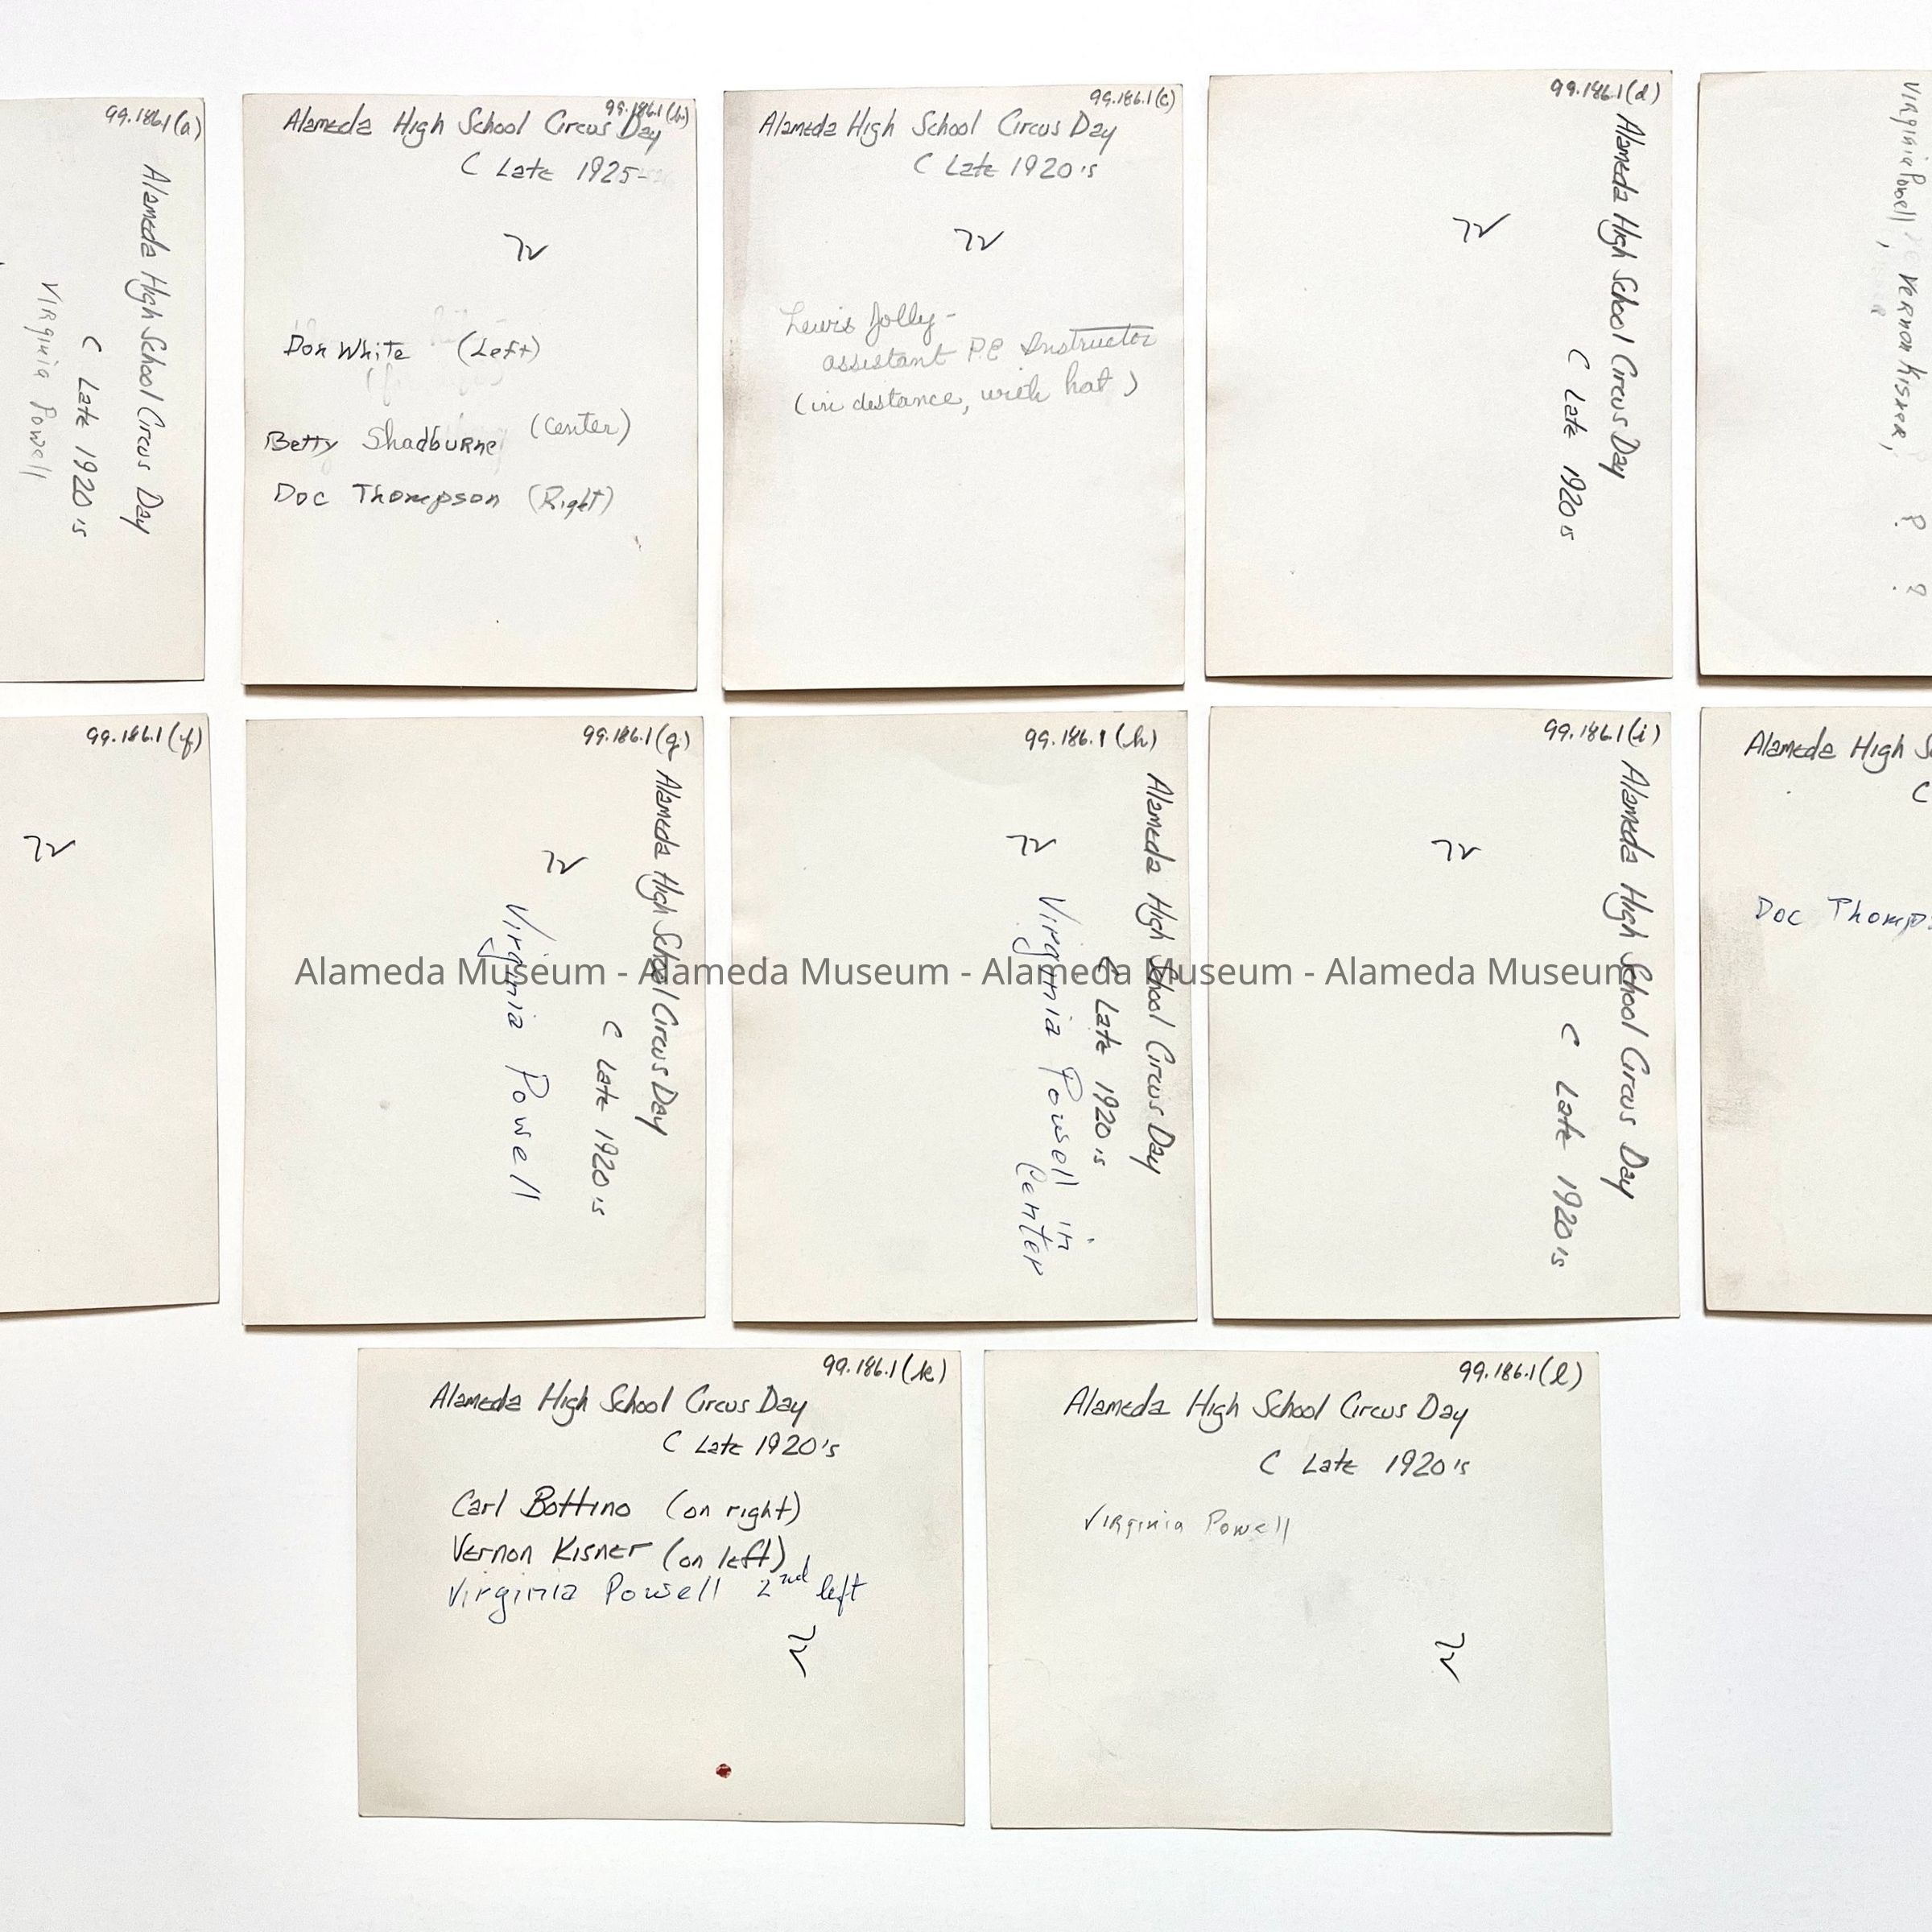 99.186.1(a)
Alameda High School Circus Day
C Late 1920's
Virginia Powell
99.186.1(b)
Alameda High School Circus Day
C Late 1925-
72
Don White (Left)
Betty Shadburne (Center)
Doc Thompson (Right)
99.186.1(c)
Alameda High School Circus Day
C Late 1920's
72
Lewis Jolly -
assistant P.E Instructor
(in distance, with hat)
99.186.1(d)
Alameda High School Circus Day
C Late 1920's
72
Virginia Powell, Vernon Kisner, ? ?
99.186.1(f)
72
99.186.1(g)
Alameda High School Circus Day
C Late 1920's
72
Virginia Powell
99.186.1(h)
Alameda High School Circus Day
C Late 1920's
72
Virginia Powell in
Center
99.186.1(i)
Alameda High School Circus Day
C Late 1920's
72
Alameda High
C
Doc
Alameda Museum - Alameda Museum - Alameda Museum - Alameda Museum
99.186.1(k)
Alameda High School Circus Day
C Late 1920's
Carl Bottino (on right)
Vernon Kisner (on left)
Virginia Powell 2nd left
72
99.186.1(l)
Alameda High School Circus Day
C Late 1920's
Virginia Powell
72